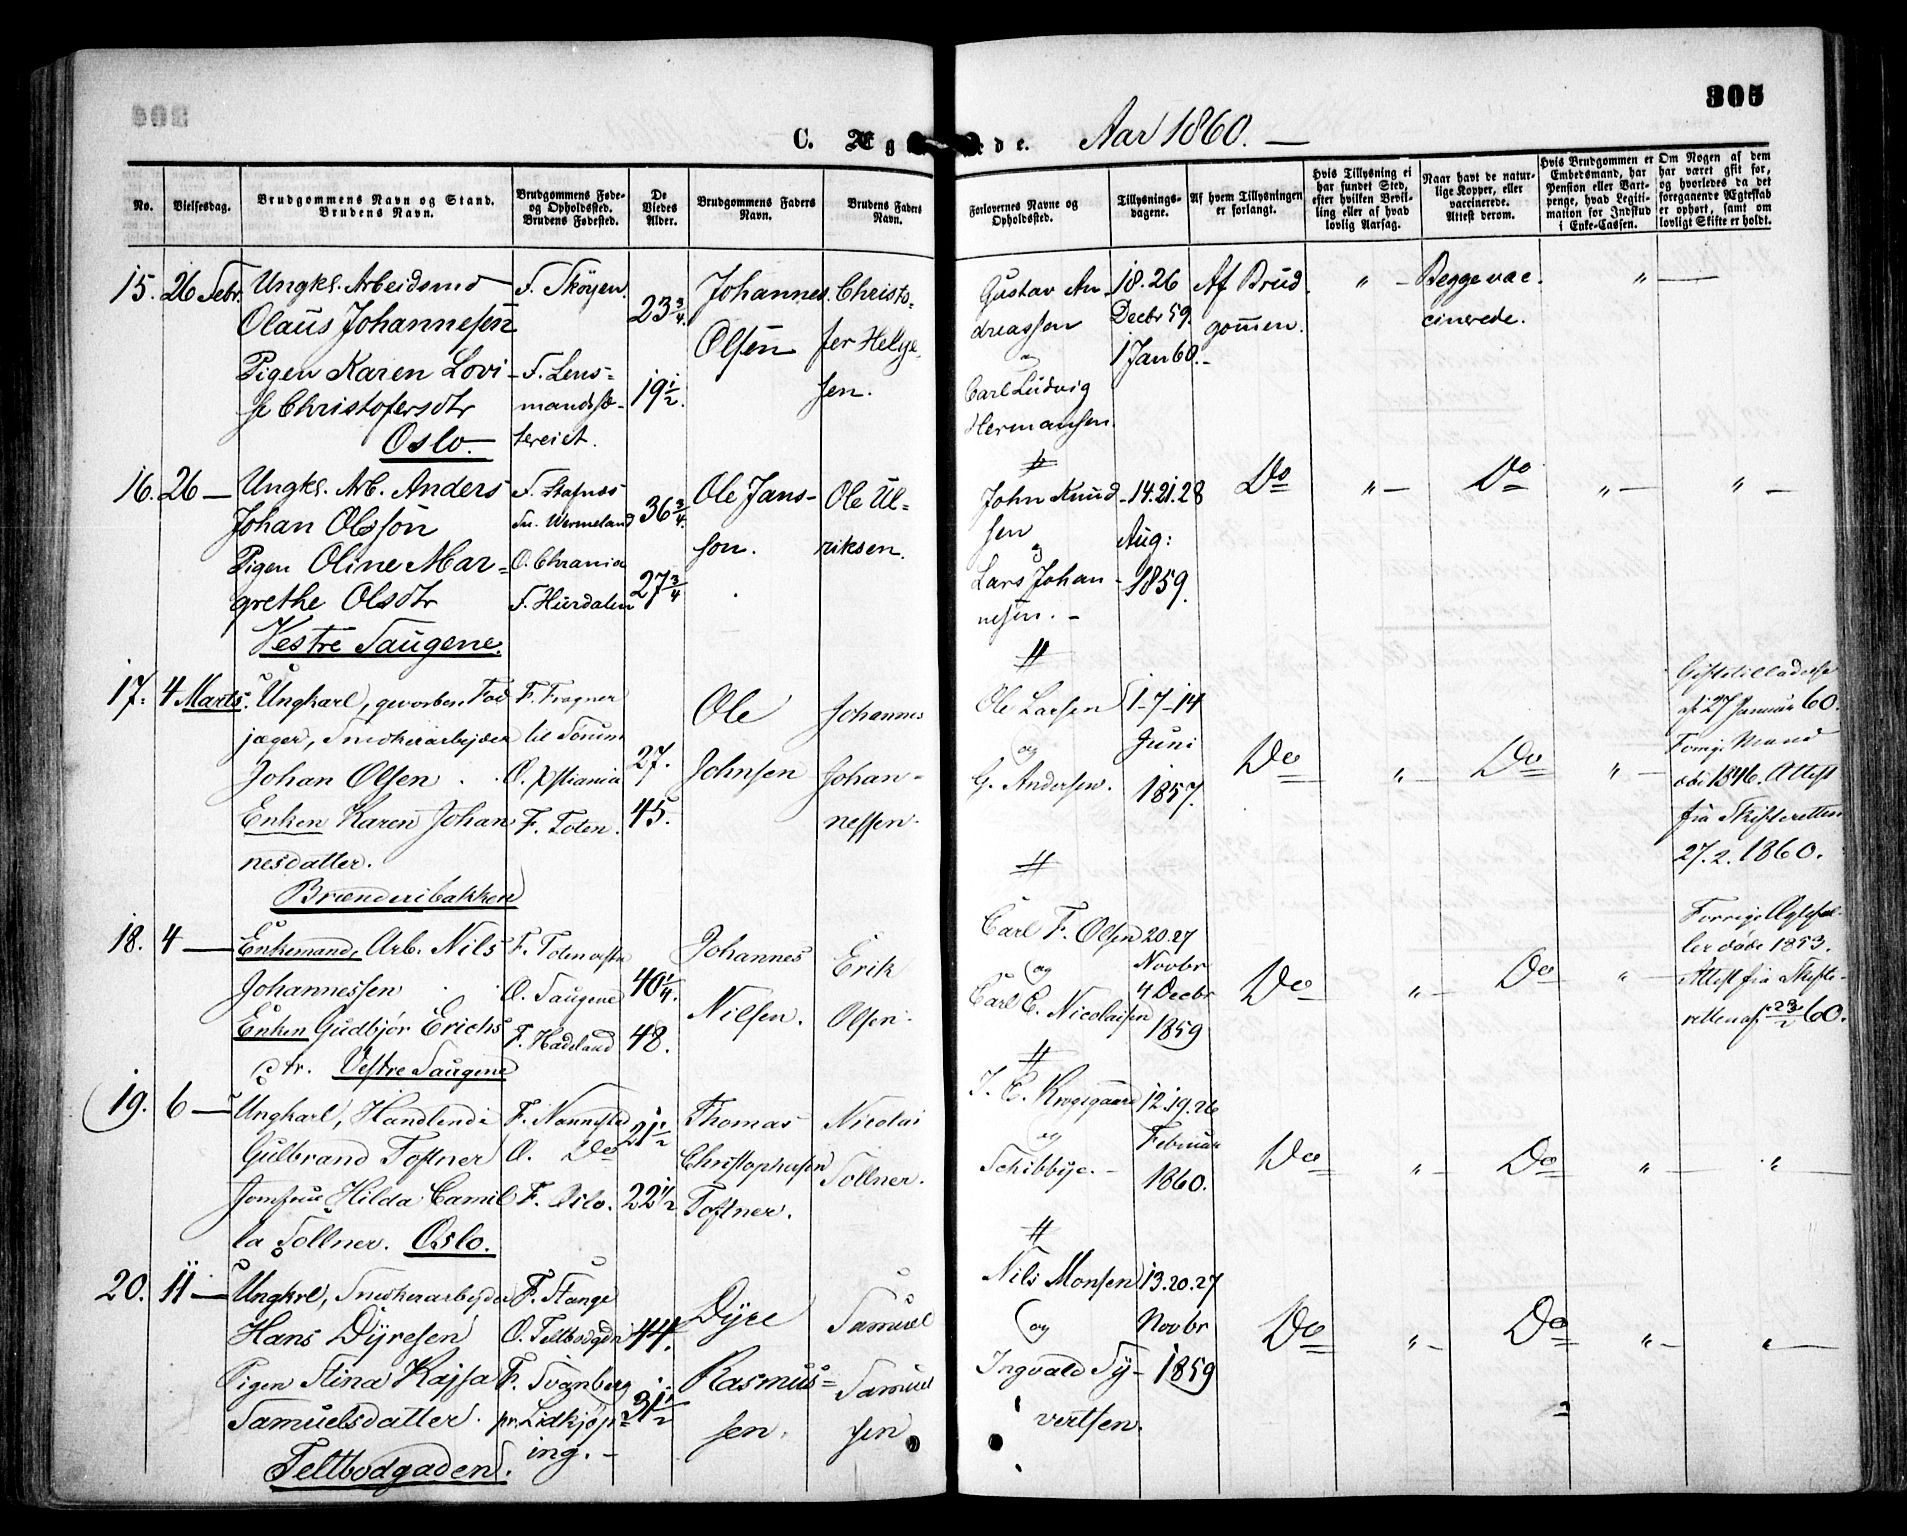 305
C. Ægteviede. Aar 1860. —
No.
Vielsesdag.
Brudgommens Navn og Stand.
Brudens Navn.
Brudgommens Føde-
og Opholdssted.
Brudens Fødested.
De
Viedes
Alder.
Brudgommens Faders
Navn.
Brudens Faders
Navn.
Forlovernes Navne og
Opholdssted.
Tillysnings-
dagene.
Af hvem Tillysningen
er forlangt.
Hvis Tillysning ei
har fundet Sted,
efter hvilken Bevil-
ling eller af hvad
lovlig Aarsag.
Naar havt de natur-
lige Kopper, eller
vaccinerede.
Attest derom.
Hvis Brudgommen er
Embedsmand, har
Pension eller Vart-
penge, hvad Legiti-
mation for Indskud
i Enke-Cassen.
Om Nogen af dem
har været gift før,
og hvorledes da det
foregaaende Ægteskab
er ophørt, samt om
lovligt Skifte er holdt.
15. 26 Febr.
Ungkl. Arbeidsmd
Olaus Johannesen
Pigen Karen Lovi-
se Christofersdtr
Oslo.
F. Skøyen.
F. Lens-
mandsæ-
tereiet.
23 3/4.
19 1/2.
Johannes
Olsen
Christo-
fer Helge-
sen.
Gustav An-
dreassen
og
Carl Ludvig
Hermansen.
18. 26
Decbr 59.
1 Jan 60.
Af Brud
gommen.
" —
Begge vac-
cinerede.
" —
16. 26 —
Ungkl. Arb. Anders
Johan Olsson
Pigen Oline Mar-
grethe Olsdtr
Vestre Gaugene.
F. Stafnæs
Sn. Wermeland
O. Chrania
F. Hurdalen
36 3/4.
27 3/4
Ole Jans-
son.
Ole Ul-
riksen.
John Knud-
sen
og
Lars Johan-
nesen. —
14. 21. 28
Aug:
1859.
Do
" —
Do
" —
" —
17. 4 Marts.
Ungkarl, gevorben Fod
jæger, Snedkerarbejder
Johan Olsen
Enken Karen Johan
nesdatter.
Brænderibakken
F. Frogner
til Sørum
O. Xstiania
F. Toten.
27.
45.
Ole
Johnsen
Johannes
Johan-
nessen.
Ole Larsen
og
G. Andersen.
1-7-14
Juni
1857.
Do
" —
Do
" —
Giftetilladelse
af 27 Januar 60.
Forrige Mand
død 1846. Attest
fra Skifteretten
27. 2. 1860.
18. 4 —
Enkemand, Arb. Nils
Johannessen
Enken Gudbjør Erichs
dtr. Vestre Gaugene
F. Toten
O. Gaugene
F. Hadeland
40 1/4.
48.
Johannes
Nilsen.
Erik
Olsen.
Carl F. Olsen
og
Carl E. Nicolaisen
20. 27
Novbr
4 Decbr
1859
Do
" —
Do
" —
Forrige Ægtefæl-
ler døde 1853.
Attest fra Skifte-
retten af 23/2 60.
19. 6 —
Ungkarl, Handlende
Gulbrand Toftner
Jomfru Hilda Camil
la Tollner. Oslo.
F. Nannestad
O. Do
F. Oslo.
21 1/2
22 1/2
Thomas
Christophersen
Toftner.
Nicolai
Tollner.
J. E. Krogsgaard
og
Schibbye. —
12. 19. 26
Februar
1860.
Do
" —
Do
" —
" —
20. 11 —
Ungkrl, Snedkerarbejder
Hans Dyresen
Pigen Stina Kajsa
Samuelsdatter.
Feltbodgaden.
F. Stange
O. Feltbodgdn
F. Svanberg
pr. Lidkjøp-
ing. —
44.
31 1/2
Dyre
Rasmus-
sen.
Samuel
Samuel
sen
Nils Monsen
og
Ingvald Sy-
vertsen.
13. 20. 27
Novbr
1859
Do
" —
Do
" —
" —